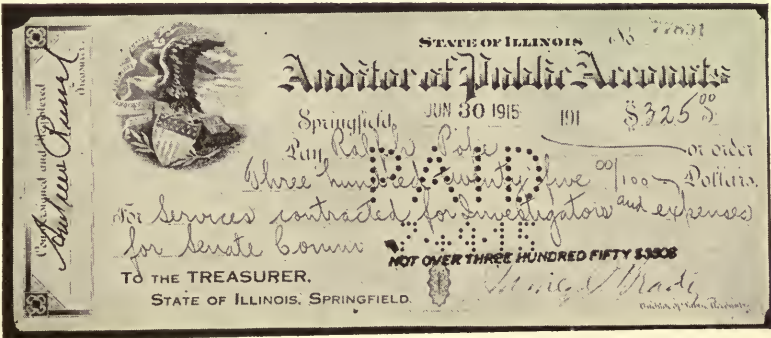 STATE OF ILLINOIS No
Auditor of Public Accounts
Springfield, JUN 30 1915 191 $325 00
Pay Ralph Pope or order
Three hundred twenty five 00/100 Dollars,
For Services contracted for Investigators and expenses
for Senate Comm
PAID
NOT OVER THREE HUNDRED FIFTY
TO THE TREASURER,
STATE OF ILLINOIS, SPRINGFIELD.
Brady
Auditor of Public Accounts
Countersigned and Registered
Andrew Russel
Treasurer